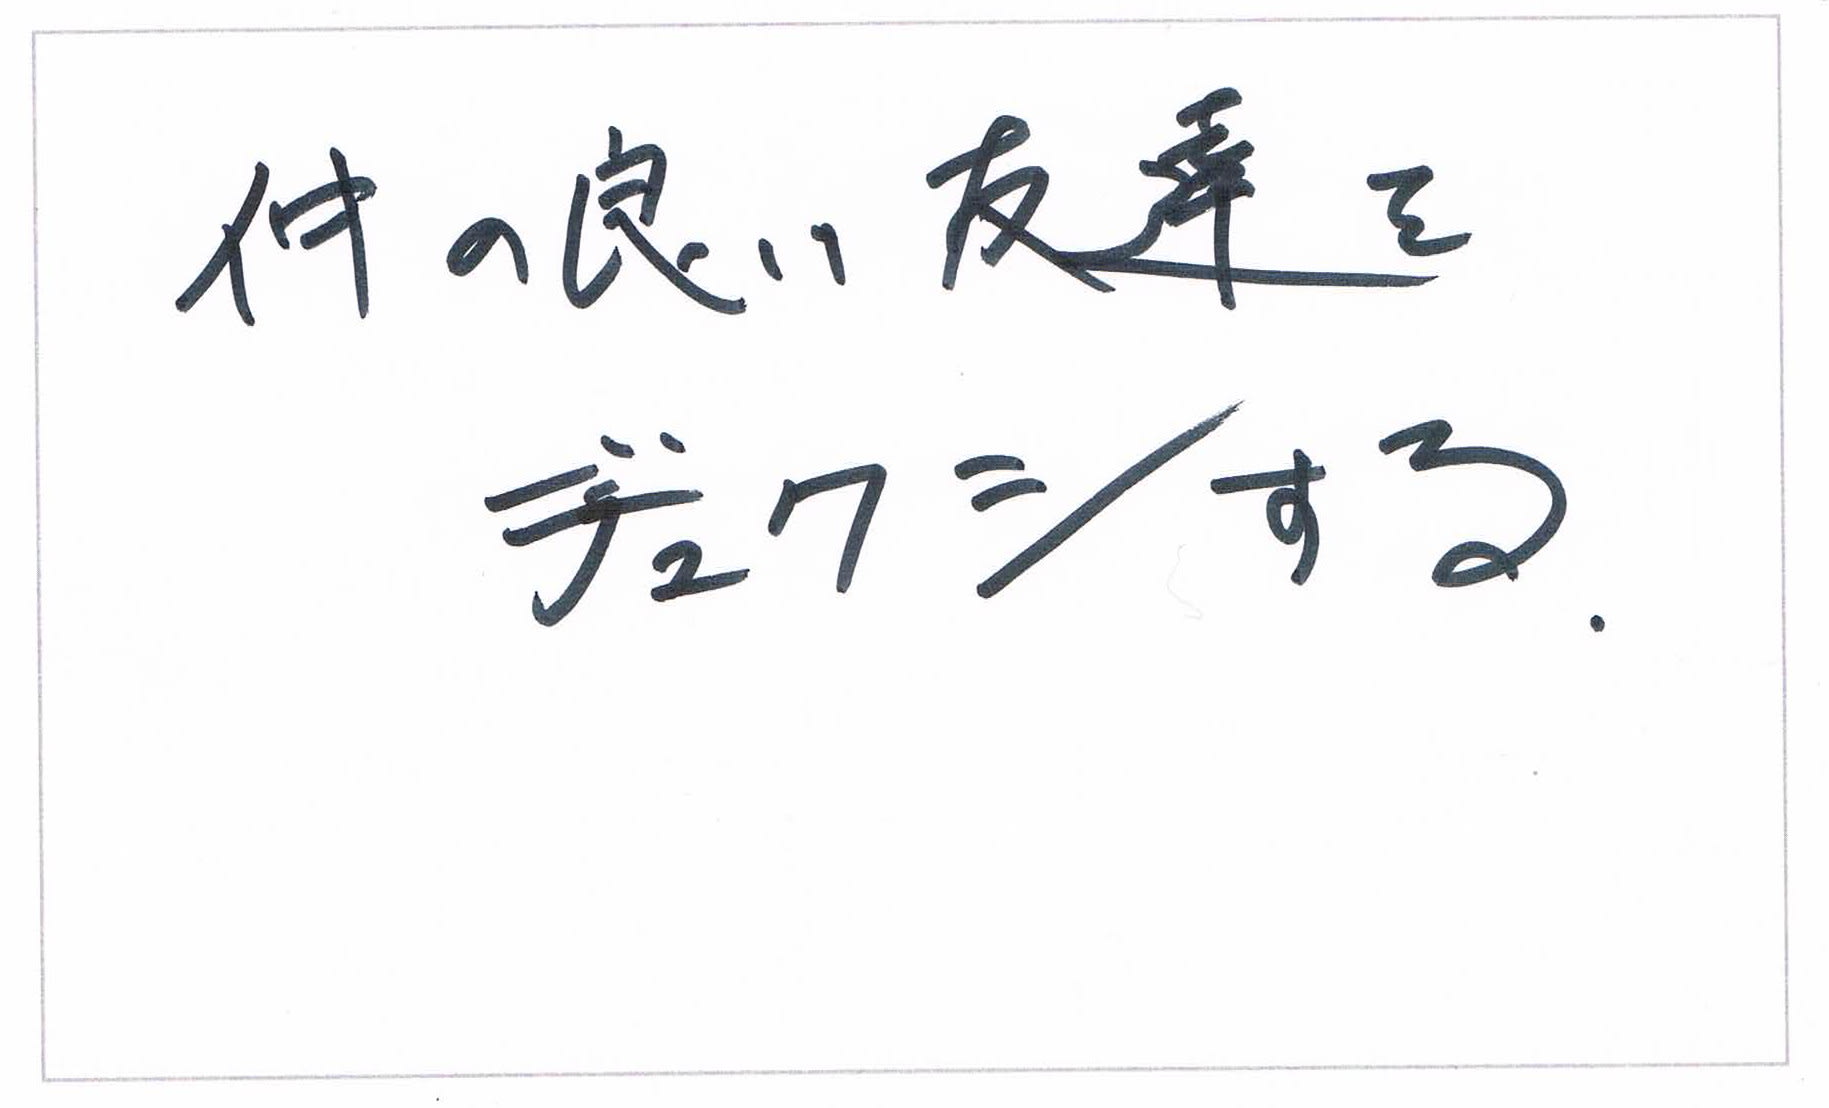 仲の良い友達を
デュクシする.